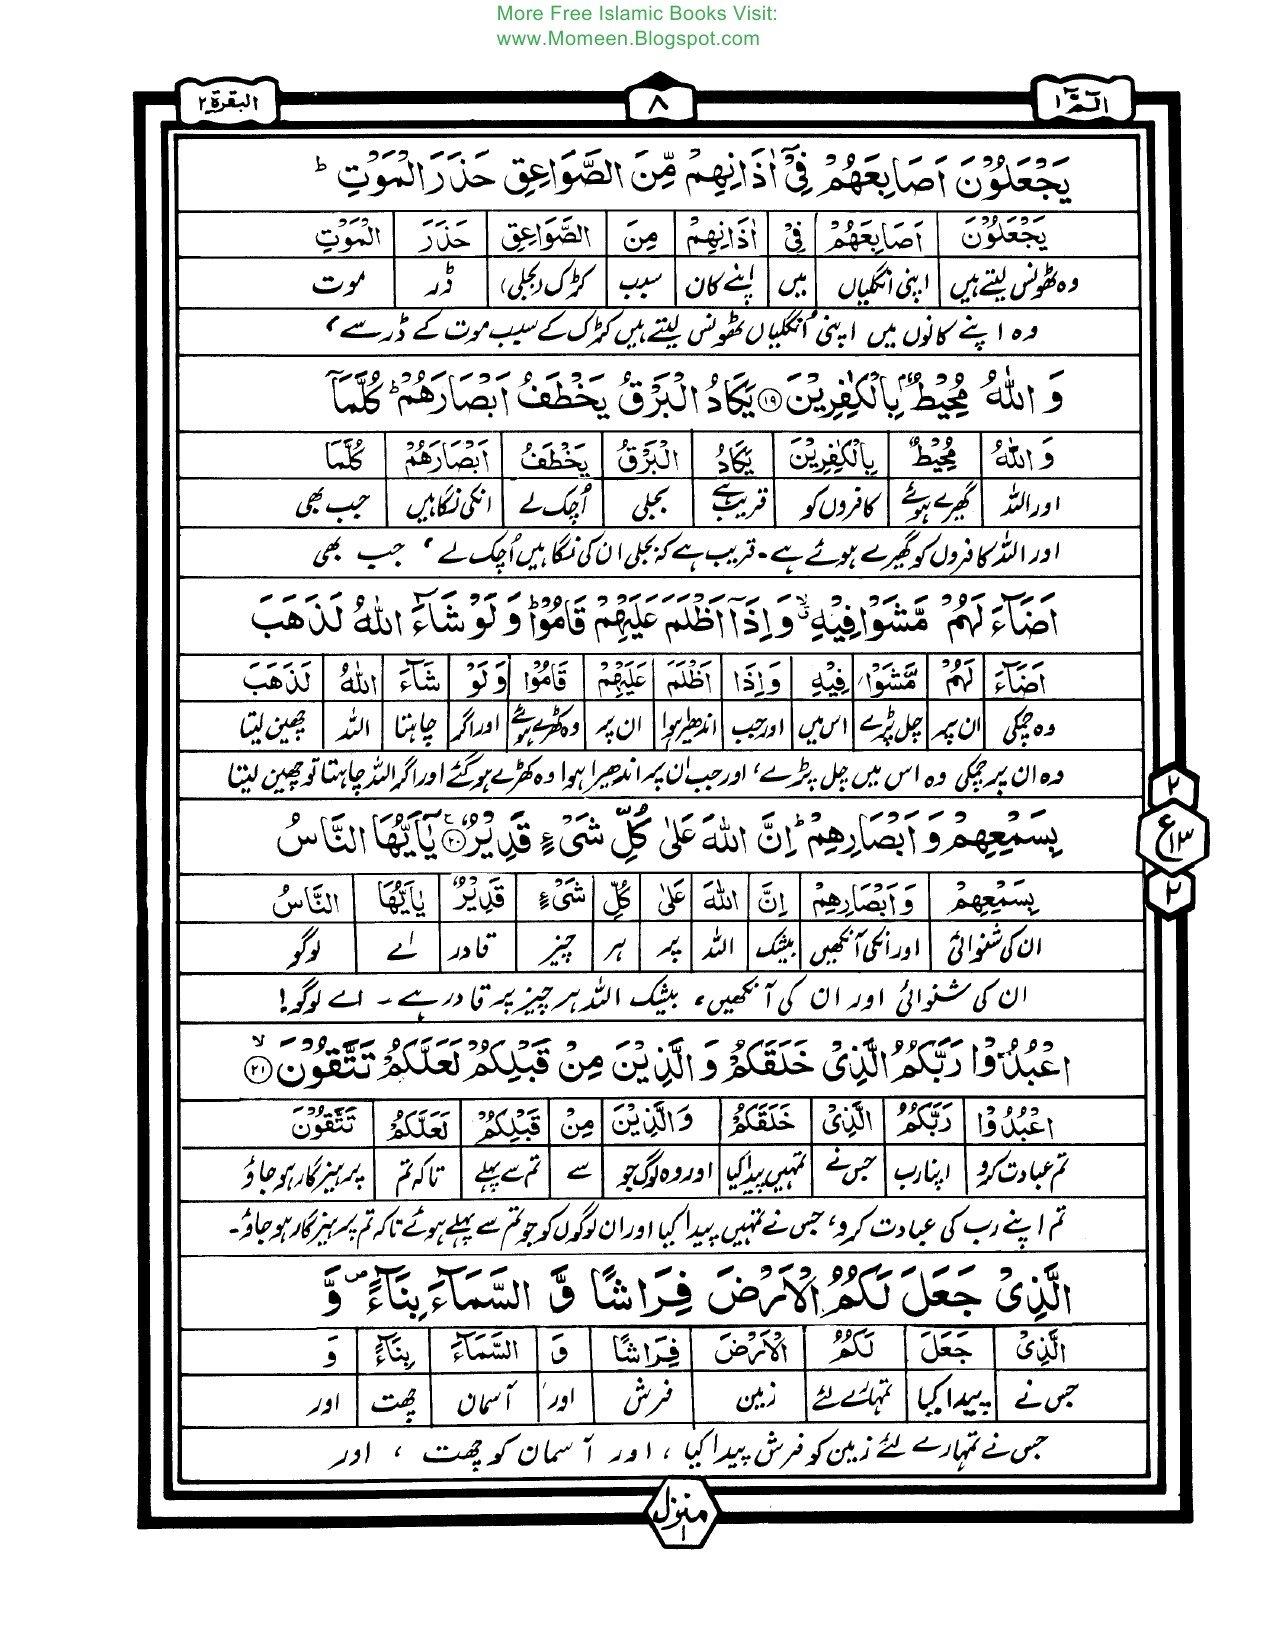 More Free Islamic Books Visit:
www.Momeen.Blogspot.com
الٓمّٓ ۱ ۸ البقرة ۲
يَجْعَلُوْنَ اَصَابِعَهُمْ فِيْٓ اٰذَانِهِمْ مِّنَ الصَّوَاعِقِ حَذَرَ الْمَوْتِ ؕ
يَجْعَلُوْنَ اَصَابِعَهُمْ فِيْ اٰذَانِهِمْ مِنَ الصَّوَاعِقِ حَذَرَ الْمَوْتِ
وہ ٹھونس لیتے ہیں اپنی انگلیاں میں اپنے کان سبب کڑک (بجلی) ڈر موت
وہ اپنے کانوں میں اپنی انگلیاں ٹھونس لیتے ہیں کڑک کے سبب موت کے ڈر سے،
وَاللّٰهُ مُحِيْطٌۢ بِالْكٰفِرِيْنَ ﴿۱۹﴾ يَكَادُ الْبَرْقُ يَخْطَفُ اَبْصَارَهُمْ ؕ كُلَّمَآ
وَاللّٰهُ مُحِيْطٌ بِالْكٰفِرِيْنَ يَكَادُ الْبَرْقُ يَخْطَفُ اَبْصَارَهُمْ كُلَّمَآ
اور اللہ گھیرے ہوئے کافروں کو قریب ہے بجلی اُچک لے انکی نگاہیں جب بھی
اور اللہ کافروں کو گھیرے ہوئے ہے۔ قریب ہے کہ بجلی ان کی نگاہیں اُچک لے، جب بھی
اَضَآءَ لَهُمْ مَّشَوْا فِيْهِ ۙ وَاِذَآ اَظْلَمَ عَلَيْهِمْ قَامُوْا ؕ وَلَوْ شَآءَ اللّٰهُ لَذَهَبَ
اَضَآءَ لَهُمْ مَّشَوْا فِيْهِ وَاِذَا اَظْلَمَ عَلَيْهِمْ قَامُوْا وَلَوْ شَآءَ اللّٰهُ لَذَهَبَ
وہ چمکی ان پر چل پڑے اس میں اور جب اندھیرا ہوا ان پر وہ کھڑے ہوئے اور اگر چاہتا اللہ چھین لیتا
وہ ان پر چمکی وہ اس میں چل پڑے، اور جب ان پر اندھیرا ہوا وہ کھڑے ہوگئے اور اگر اللہ چاہتا تو چھین لیتا
بِسَمْعِهِمْ وَاَبْصَارِهِمْ ؕ اِنَّ اللّٰهَ عَلٰى كُلِّ شَيْءٍ قَدِيْرٌ ﴿۲۰﴾ يٰٓاَيُّهَا النَّاسُ
بِسَمْعِهِمْ وَاَبْصَارِهِمْ اِنَّ اللّٰهَ عَلٰى كُلِّ شَيْءٍ قَدِيْرٌ يٰاَيُّهَا النَّاسُ
ان کی شنوائی اور انکی آنکھیں بیشک اللہ پر ہر چیز قادر اے لوگو
ان کی شنوائی اور ان کی آنکھیں، بیشک اللہ ہر چیز پر قادر ہے۔ اے لوگو!
۲
ع ۱۳
۲
اعْبُدُوْا رَبَّكُمُ الَّذِيْ خَلَقَكُمْ وَالَّذِيْنَ مِنْ قَبْلِكُمْ لَعَلَّكُمْ تَتَّقُوْنَ ﴿۲۱﴾ ۙ
اعْبُدُوْا رَبَّكُمُ الَّذِيْ خَلَقَكُمْ وَالَّذِيْنَ مِنْ قَبْلِكُمْ لَعَلَّكُمْ تَتَّقُوْنَ
تم عبادت کرو اپنا رب جس نے تمہیں پیدا کیا اور وہ لوگ جو سے تم سے پہلے تاکہ تم پرہیزگار ہو جاؤ
تم اپنے رب کی عبادت کرو، جس نے تمہیں پیدا کیا اور ان لوگوں کو جو تم سے پہلے ہوئے تاکہ تم پرہیزگار ہو جاؤ۔
الَّذِيْ جَعَلَ لَكُمُ الْاَرْضَ فِرَاشًا وَّ السَّمَآءَ بِنَآءً ۪ وَّ
الَّذِيْ جَعَلَ لَكُمُ الْاَرْضَ فِرَاشًا وَّ السَّمَآءَ بِنَآءً وَّ
جس نے پیدا کیا تمہارے لئے زمین فرش اور آسمان چھت اور
جس نے تمہارے لئے زمین کو فرش پیدا کیا، اور آسمان کو چھت، اور
منزل ۱